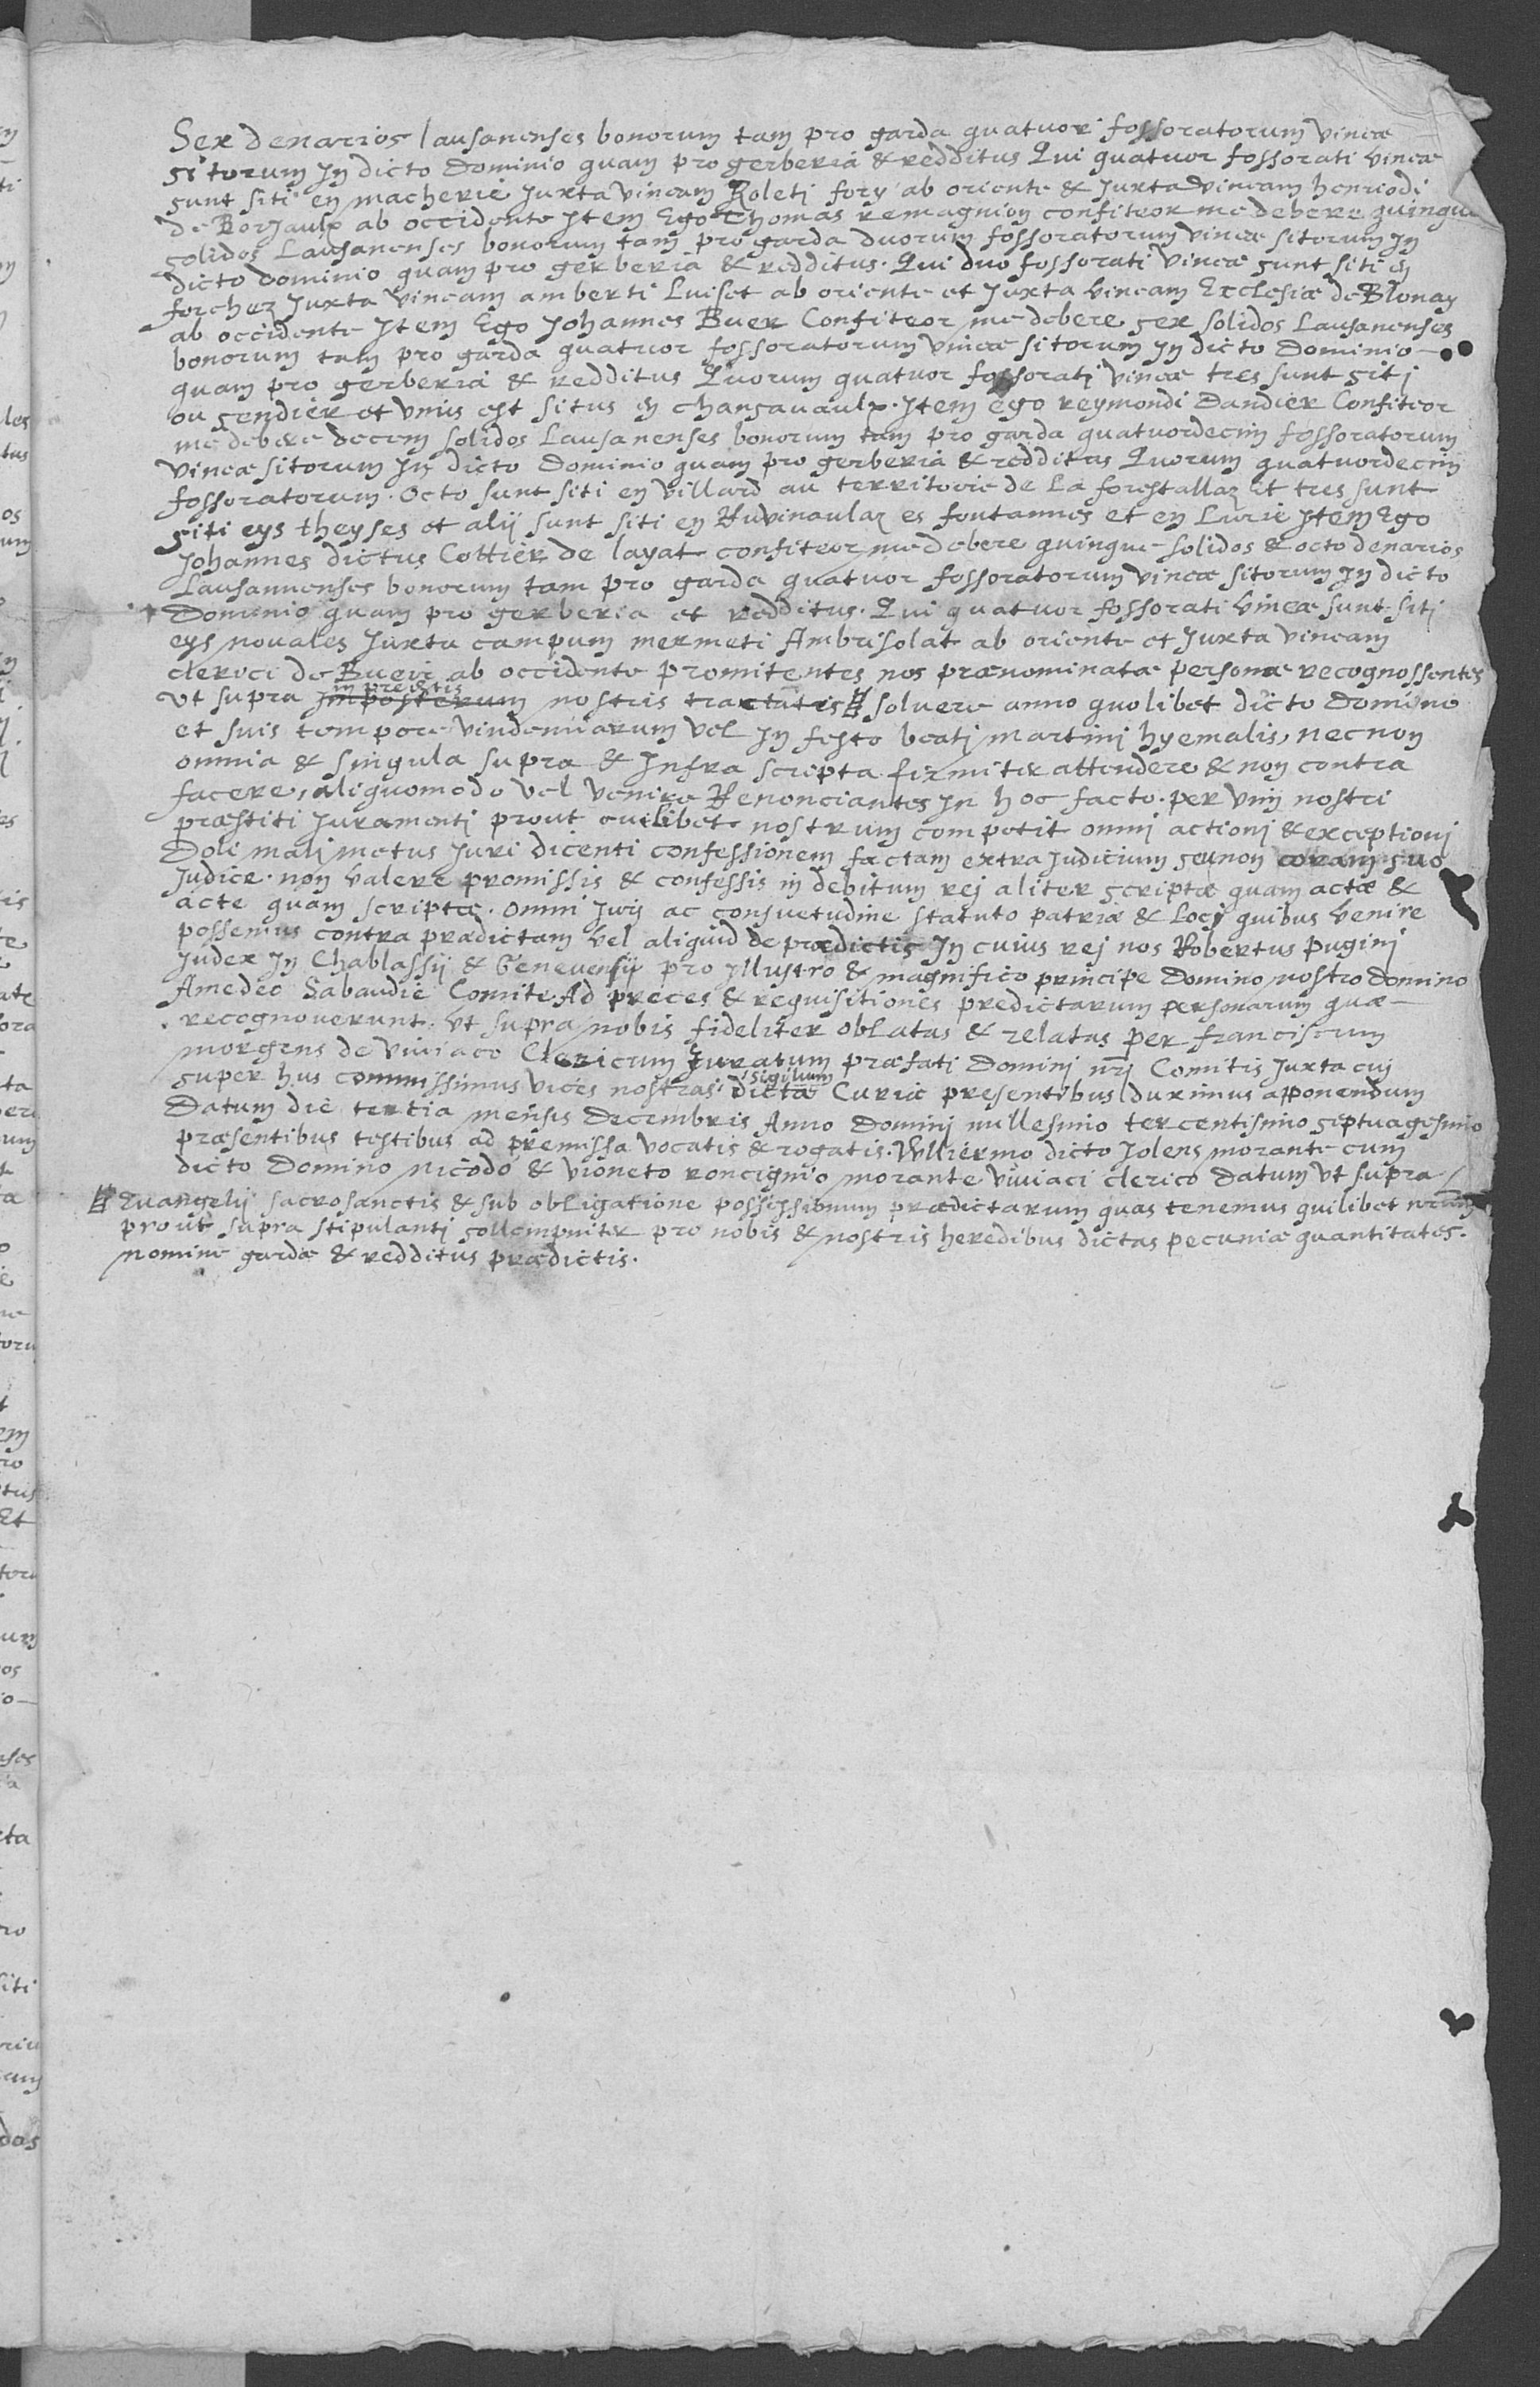 Sex denarios lausanenses bonorum tam pro garda quatuor fossoratorum vineæ
sitorum Jn dicto Dominio quam pro gerberia & redditus Qui quatuor fossorati vineæ
sunt siti en macherie Juxta vineam Roleti fory ab oriente & Juxta vineam henriodi
de Borjaulx ab occidente Jtem Ego Thomas remagnion confiteor me debere quinque
solidos Lausanenses bonorum tam pro garda duorum fossoratorum vineæ sitorum Jn
dicto Dominio quam pro gerberia & redditus. Qui duo fossorati vineæ sunt siti en
forchez Juxta vineam amberti Luiset ab oriente et Juxta vineam Ecclesiæ de Blonay
ab occidente Jtem Ego Johannes Buer Confiteor me debere sex solidos Lausanenses
bonorum tam pro garda quatuor fossoratorum vineæ sitorum Jn dicto Dominio
quam pro gerberia & redditus Quorum quatuor fossorati vineæ tres sunt siti
ou sendier et vnus est situs en chansavaulx. Jtem ego reymondi Dandier Confiteor
me debere decem solidos Lausanenses bonorum tam pro garda quatuordecim fossoratorum
vineæ sitorum Jn dicto Dominio quam pro gerberia & redditus Quorum quatuordecim
fossoratorum. Octo sunt siti en villard au territoire de La forestallaz Et tres sunt
siti eys theyses et alij sunt siti en Ruvinaulaz es fontannes et en Lurie Jtem Ego
Johannes dictus Cottier de layat confiteor me debere quinque solidos & octo denarios
Lausannenses bonorum tam pro garda quatuor fossoratorum vineæ sitorum Jn dicto
Dominio quam pro gerberia et redditus. Qui quatuor fossorati vineæ sunt siti
eys novales Juxta campum mermeti Ambrisolat ab oriente et Juxta vineam
clerici de Bueri ab occidente promitentes nos prænominatæ personæ recognossentes
vt supra Jmposterum nostris tractatis # solvere anno quolibet dicto Domino
et suis tempore vindemiarum vel Jn festo beati martini hyemalis, necnon
omnia & singula supra & Jnfra scripta firmiter attendere & non contra
facere, aliquomodo vel venire Renonciantes Jn hoc facto. per vim nostri
præstiti Juramenti prout cuilibet nostrum competit omni actioni & exceptioni
Doli mali metus Juri dicenti confessionem factam extra Judicium seu non coram suo
Judice. non valere promissis & confessis in debitum rej aliter scriptæ quam actæ &
acte quam scriptæ. omni Jurij ac consuetudine statuto patriæ & Locj quibus venire
possemus contra prædictam vel aliquid de prædictis Jn cuius rej nos Robertus pugini
Judex Jn Chablassij & Genevensij pro Jllustro & magnifico principe Domino nostro domino
Amedeo Sabaudie Comite. Ad preces & requisitiones predictarum personarum quæ
recognoverunt. vt supra nobis fideliter oblatas & relatas per franciscum
morgens de viviaco Clericum Juratum præfati Domini nrj Comitis Juxta cuj
super hus commissimus vices nostras sigilium dictæ Curiæ presentibus duximus apponendum
Datum die tertia mensis Decembris Anno Dominj millesimo tercentisimo septuagesimo
præsentibus testibus ad premissa vocatis & rogatis. Wlliermo dicto Jolens morante cum
dicto Domino nicodo & vioneto roncignio morante viviaci clerico Datum vt supra
# Evangelij sacrosanctis & sub obligatione possissionum prædictarum quas tenemus quilibet nostrum
prout supra stipulanti sollempniter pro nobis & nostris heredibus dictas pecuniæ quantitates.
nomine gardæ & redditus prædictis.